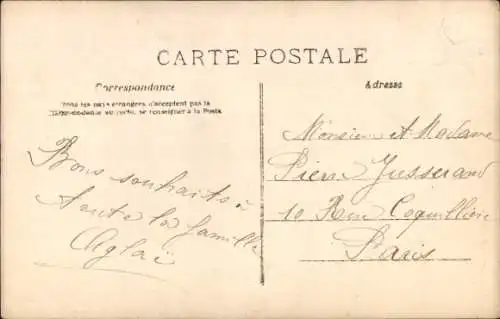 CARTE POSTALE
Correspondance
Adresse
Tous les pays étrangers n'acceptent pas la
Correspondance au recto, se renseigner à la Poste
Bons souhaits à
toute la famille
Aglaë
Monsieur et Madame
Pierre Jusserand
10 Rue Coquillière
Paris